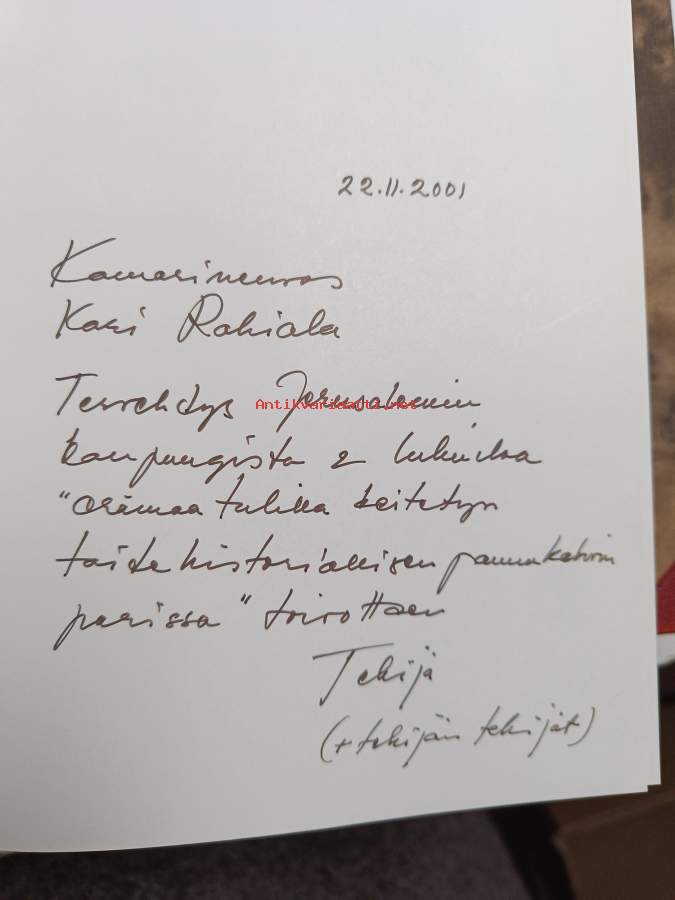 22.11.2001
Kamarineuvos
Kari Rahiala
Tervehdys Jerusalemin
Antikvariaatti.net
kaupungista & lukuiloa
"omimaa tulilla keitetyn
taidehistoriallisen pannukahvin
parissa" toivottaen
Tekijä
(+ tekijän tekijät)